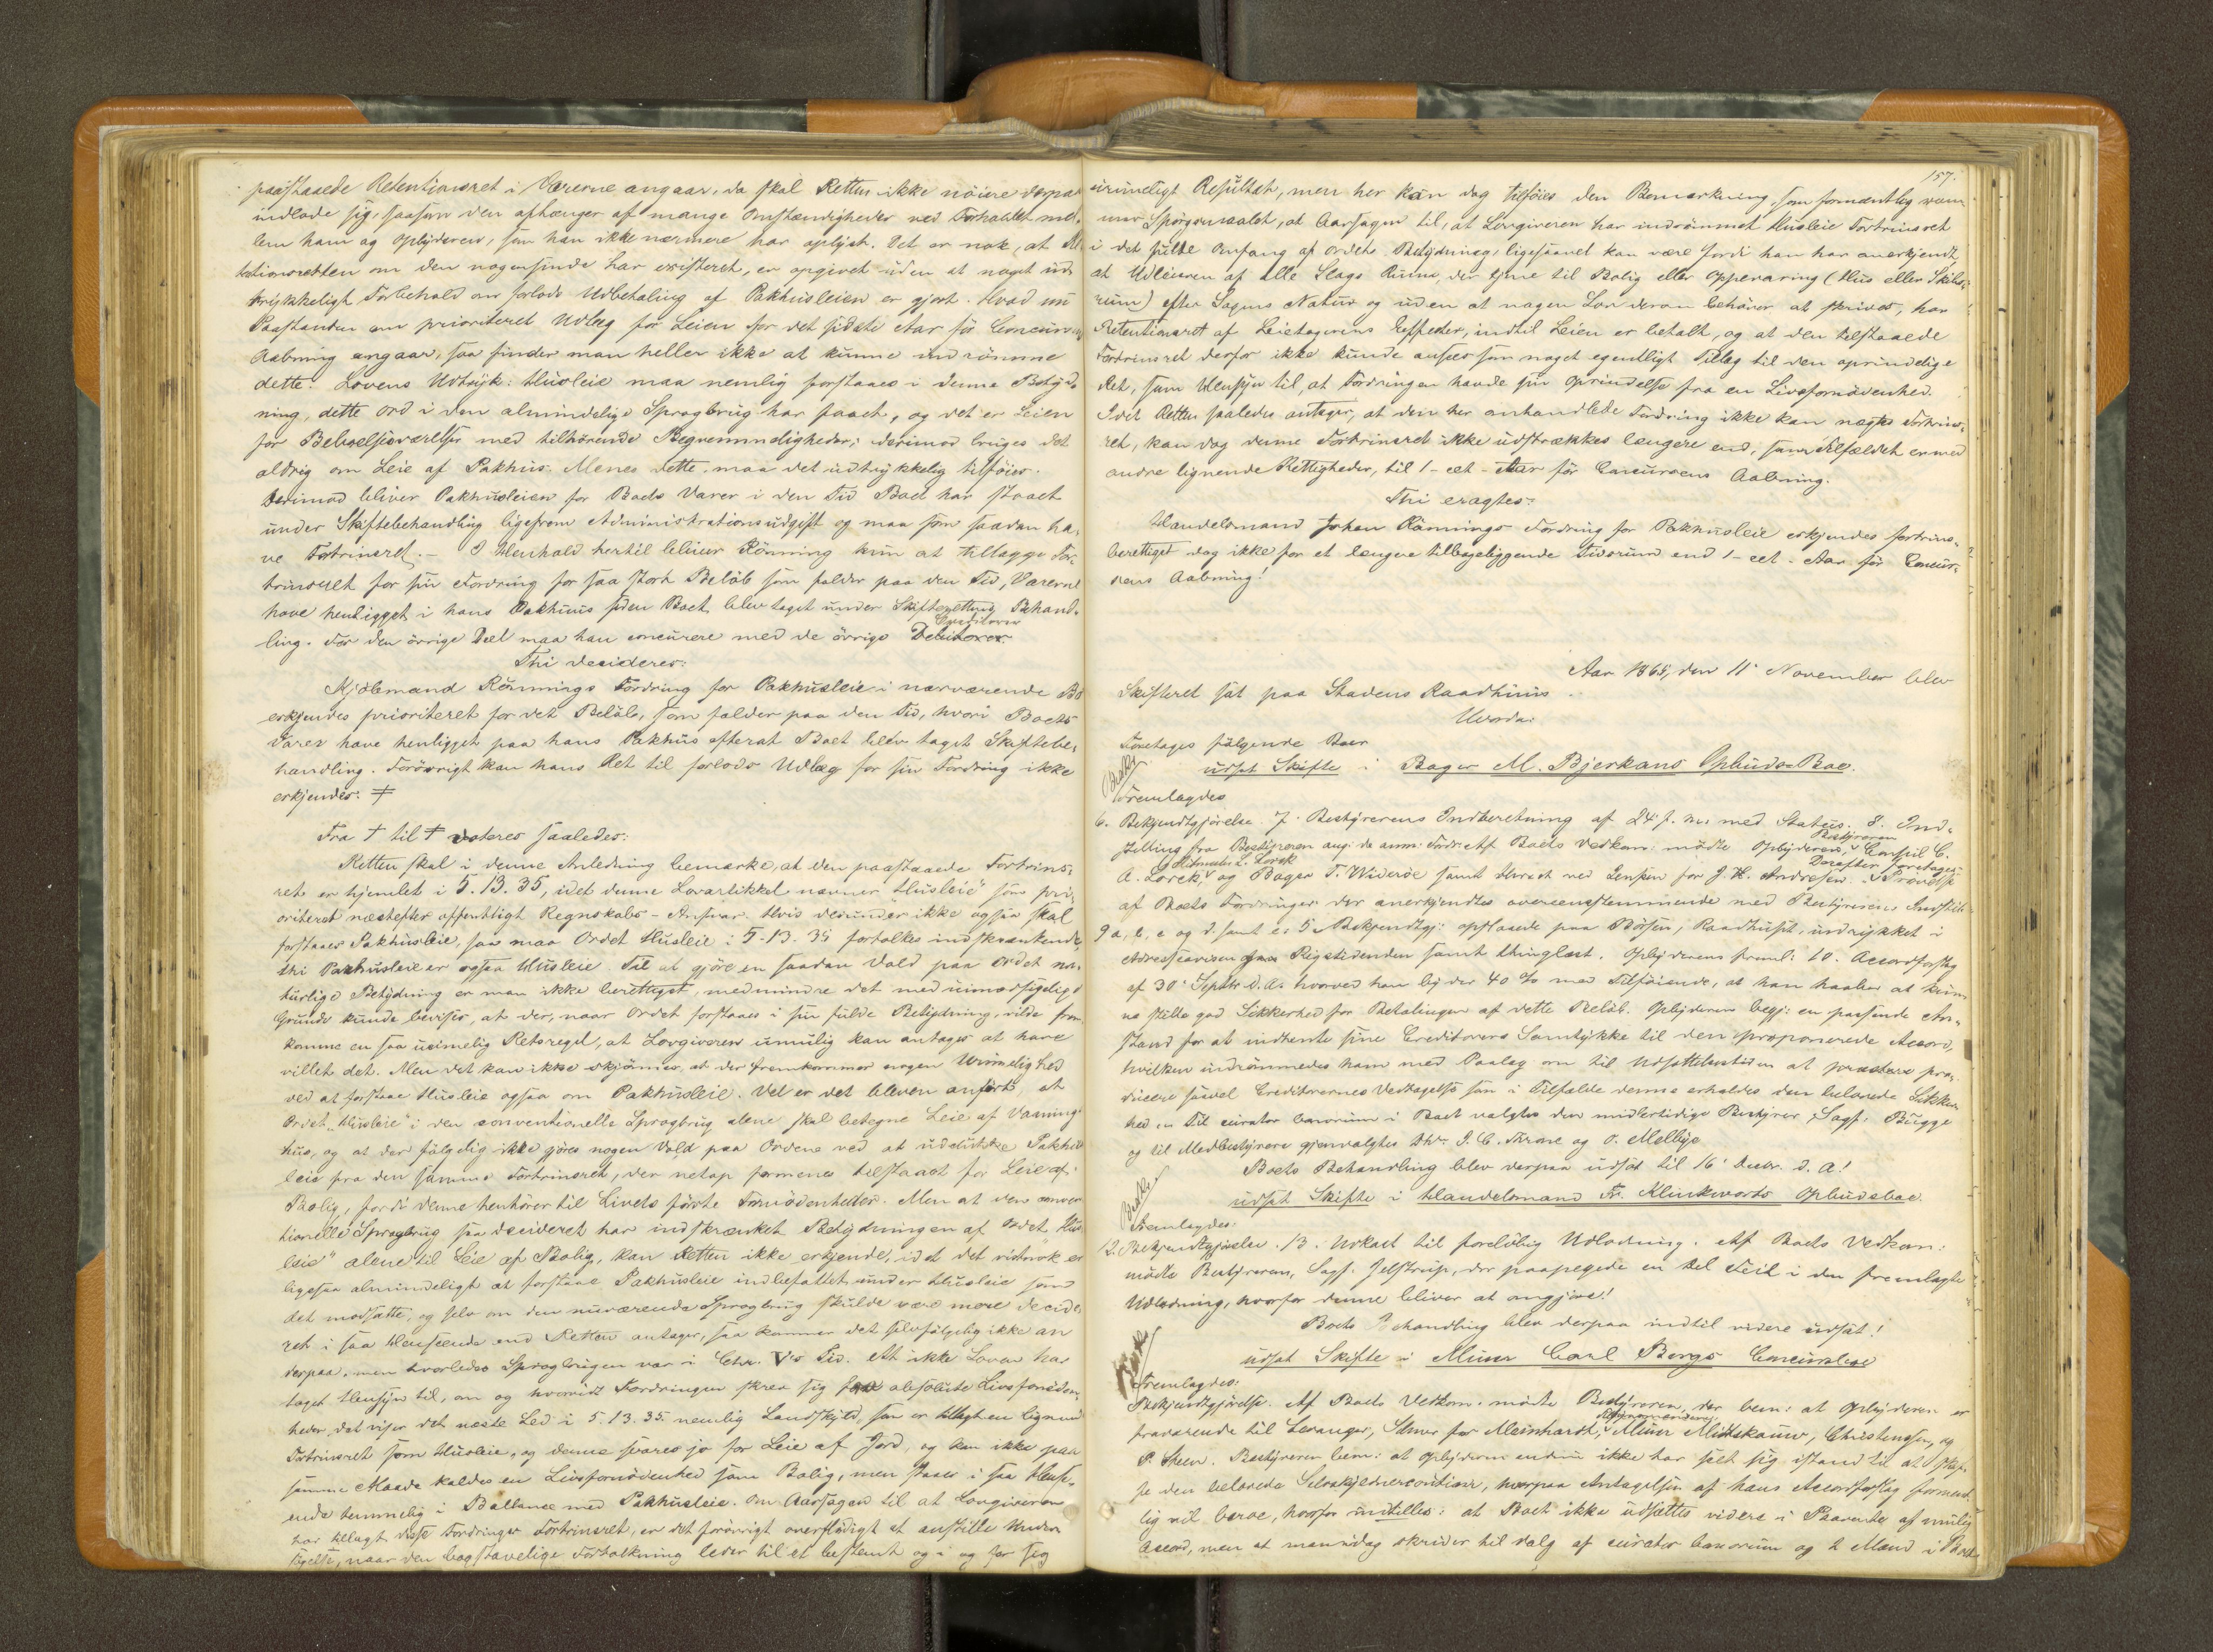 paastaaede Retentionsret i Varerne angaar, da skal Retten ikke nöiere derpaa
indlade sig, saasom den afhænger af mange Omstændigheder ved Forholdet mel-
lem ham og Opbyderen, som han ikke nærmere har oplyst. Det er nok, at Re-
tentionsretten om den nogensinde har existeret, er opgivet uden at noget ud-
trykkeligt Forbehold om forlods Udbetaling af Pakhusleien er gjort. Hvad nu
Paastanden om prioriteret Udlæg for Leien for det sidste Aar för Concursens
Aabning angaar, saa finder man heller ikke at kunne indrömme
dette. Lovens Udtryk: Husleie maa nemlig forstaaes i denne Betyd-
ning, dette Ord i den almindelige Sprogbrug har faaet, og det er Leien
for Beboelsesværelser med tilhörende Beqvemmeligheder; derimod bruges det
aldrig om Leie af Pakhus. Menes dette, maa det udtrykkelig tilföies.
Derimod bliver Pakhusleien for Boets Varer i den Tid Boet har staaet
under Skiftebehandling ligefrem Administrationsudgift og maa som saadan ha-
ve Fortrinsret. – I Henhold hertil bliver Rönning kun at tillægge For-
trinsret for sin Fordring for saa stort Belöb som falder paa den Tid, Varerne
have henligget i hans Pakhuus siden Boet blev taget under Skifterettens Behand-
ling. For den övrige Deel maa han concurere med de övrige Debitorer Creditorer
Thi decideres:
Kjöbmand Rönnings Fordring for Pakhusleie i nærværende Bo
erkjendes prioriteret for det Belöb, som falder paa den Tid, hvori Boets
Varer have henligget paa hans Pakhus efterat Boet blev taget Skiftebe-
handling. Forövrigt kan hans Ret til forlods Udlæg for sin Fordring ikke
erkjendes. ‡
Fra † til ‡ voteres saaledes:
Retten skal i denne Anledning bemærke, at den paastaaede Fortrins-
ret er hjemlet i 5.13.35, idet denne Lovartikkel nævner "Husleie" som pri-
oriteret næstefter offentligt Regnskabs-Ansvar. Hvis derunder ikke ogsaa skal
forstaaes Pakhusleie, saa maa Ordet Husleie i 5-13-35 fortolkes indskrænkende,
thi Pakhusleie er ogsaa Husleie. Til at gjöre en saadan Vold paa Ordets na-
turlige Betydning er man ikke berettiget, medmindre det med uimodsigelige
Grunde kunde bevises, at der, naar Ordet forstaaes i sin fulde Betydning, vilde frem-
komme en saa urimelig Retsregel, at Lovgiveren umulig kan antages at have
villet det. Men det kan ikke skjönnes, at der fremkommer nogen Urimelighed
ved at forstaae Husleie ogsaa om Pakhusleie. Vel er det bleven anfört, at
Ordet "Husleie" i den conventionelle Sprogbrug alene skal betegne Leie af Vaanings-
hus, og at der fölgelig ikke gjöres nogen Vold paa Ordene ved at udelukke Pakhus-
leie fra den samme Fortrinsret, der netop formenes tilstaaet for Leie af
Bolig, fordi denne henhörer til Livets förste Fornödenheder. Men at den conven-
tionelle Sprogbrug saa decideret har indskrænket Betydningen af Ordet "Hus-
leie" alene til Leie af Bolig, kan Retten ikke erkjende, idet det vistnok er
ligesaa almindeligt at forstaae Pakhusleie indbefattet under Husleie som
det modsatte, og selv om den nuværende Sprogbrug skulde være mere decide-
ret i saa Henseende end Retten antager, saa kommer det selvfölgelig ikke an
derpaa, men hvorledes Sprogbrugen var i Chr. V's Tid. At ikke Loven har
taget Hensyn til, om og hvorvidt Fordringen skrev sig fra absolute Livsfornöden-
heder, det viser det næste Led i 5.13.35 nemlig Landskyld, som er tillagt en lignende
Fortrinsret som Husleie, og denne svares jo for Leie af Jord, og kan ikke paa
samme Maade kaldes en Livsfornödenhed som Bolig, men staaer i saa Hense-
ende temmelig i Ballance med Pakhusleie. Om Aarsagen til at Lovgiveren
har tillagt disse Fordringer Fortrinsret, er det forövrigt overflödigt at anstille Under-
sögelse, naar den bogstavelige Fortolkning leder til et bestemt og i og for sig
157.
urimeligt Resultat, men her kan dog tilföies den Bemærkning, som formentlig vam
mer Spörgsmaalet, at Aarsagen til, at Lovgiveren har indrömmet Husleie Fortrinsret
i det fulde Omfang af Ordets Betydning, ligesaavel kan være fordi han har anerkjendt,
at Udleieren af alle Slags Rum, der tjene til Bolig eller Opbevaring (Hus eller Skibs-
rum) efter Sagens Natur og uden at nogen Lov derom behöver at skrives, har
Retentionsret af Leietagerens Effecter, indtil Leien er betalt, og at den tilstaaede
Fortrinsret derfor ikke kunde ansees som noget egentligt Tillæg til den oprindelige
Ret, som Hensyn til, at Fordringen havde sin Oprindelse fra en Livsfornödenhed.
Idet Retten saaledes antager, at den her omhandlede Fordring ikke kan nægtes Fortrins-
ret, kan dog denne Fortrinsret ikke udstrækkes længere end, som Tilfældet er med
andre lignende Rettigheder, til 1 - eet - Aar för Concursens Aabning.
Thi eragtes:
Handelsmand Johan Rönnings Fordring for Pakhusleie erkjendes fortrins-
berettiget dog ikke for et længere tilbageliggende Tidsrum end 1 - eet - Aar för Concur-
sens Aabning!
Aar 1865, den 11' November blev
Skifteret sat paa Stadens Raadhuus.
Hvorda:
Foretages fölgende Boer
udsat Skifte i Bager M. Bjerkans Opbuds-Boe.
Fremlagdes
6. Bekjendtgjörelse. 7. Bestyrerens Indberetning af 24' f. m. med Status. 8. Ind-
stilling fra Bestyreren ang: de anm: Fordr: Af Boets Vedkom: mödte Opbyderen, Bestyreren Consul C.
A. Lorck, og Bager T. Wideröe samt Hirsch ved Jensen for J. H. Andresen. Derefter foretages Prövelse
af Boets Fordringer der anerkjendtes overeensstemmende med Bestyrerens Indstill-
9 a, b, c og d. samt e: 5 Bekjendtgj: opslaaede paa Börsen, Raadhuset, indrykket i
Adresseavisen Rigstidenden samt thinglæst. Opbyderen freml: 10. Accordforslag
af 30' Septbr. d. A. hvorved han byder 40 % med Tilföiende, at han haaber at kun-
ne stille god Sikkerhed for Betalingen af dette Belöb. Opbyderen begj: en passende An-
stand for at indhente sine Creditorers Samtykke til den proponerede Accord,
hvilken indrömmedes ham med Paalæg om til Udsættelsestiden at præstere pro-
ducere saavel Creditorernes Vedtagelse som i Tilfælde denne erholdes den belovede Sikker-
hed. Til curator bonorum i Boet valgtes den midlertidige Bestyrer, Sagf: Bugge
og til Medbestyrere gjenvalgtes Hr. J. C. Throne og O. Mellbye
Boets Behandling blev derpaa udsat til 16' Decbr. d. A!
udsat Skifte i Handelsmand Fr. Klinkworts Opbudsboe.
Fremlagdes:
12. Bekjendtgjörelse. 13. Udkast til foreløbig Udlodning. Af Boets Vedkom:
mödte Bestyreren, Sagf: Jelstrup, der paapegede en del Feil i den fremlagte
Udlodning, hvorfor denne bliver at omgjöre!
Boets Behandling blev derpaa indtil videre udsat!
udsat Skifte i Murer Carl Bergs Concursboe
Fremlagdes:
Bekjendtgjörelse. Af Boets Vedkom. mödte Bestyreren, der bem: at Opbyderen er
fraværende til Levanger, for Meinhardt, Murer Midtskouw, Christensen, og
P. Steen. Bestyreren bem: at Opbyderen endnu ikke har seet sig istand til at skaf-
fe den belovede Selvskyldnercaution, hvorpaa Antagelsen af hans Accordforslag forment-
lig vil beroe, hvorfor indstilles: at Boet ikke udsættes videre i Paavente af mulig
Accord, men at man idag skrider til Valg af curator bonorum og 2 Mænd i Boet